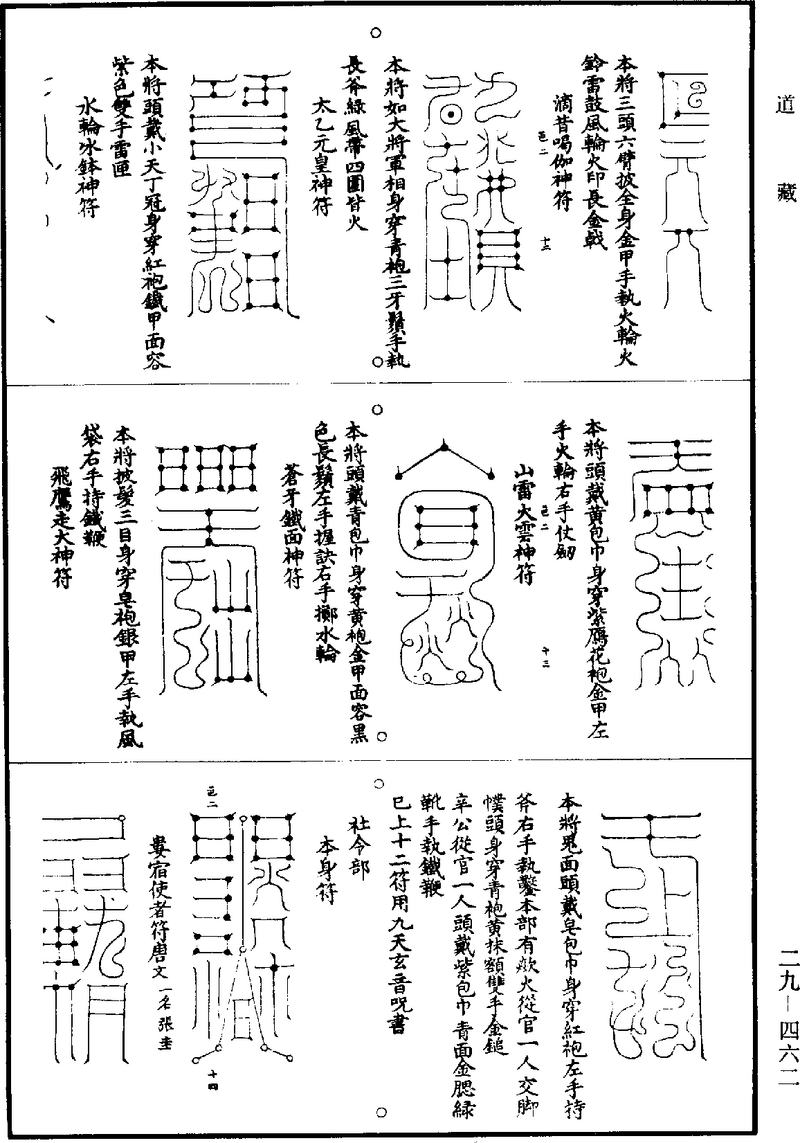 道藏
本將三頭六臂披全身金甲手執火輪火
鈴雷鼓風輪火印長金戟
滴昔喝伽神符
邑二
十二
本將如大將軍相身穿青袍三牙鬚手執
長斧綠風帶四圍皆火
太乙元皇神符
本將頭戴小天丁冠身穿紅袍鐵甲面容
紫色雙手雷匣
水輪冰鉢神符
本將頭戴黃包巾身穿紫鴈花袍金甲左
手火輪右手仗劒
山雷火雲神符
邑二
十三
本將頭戴青包巾身穿黃袍金甲面容黑
色長鬚左手握訣右手擲水輪
蒼牙鐵面神符
本將披髮三目身穿皂袍銀甲左手執風
袋右手持鐵鞭
飛鷹走犬神符
本將鬼面頭戴皂包巾身穿紅袍左手持
斧右手執鑿本部有歘火從官一人交脚
幞頭身穿青袍黃抹額雙手金鎚
辛公從官一人頭戴紫包巾青面金腮綠
靴手執鐵鞭
已上十二符用九天玄音呪書
社令部
本身符
邑二
十四
婁宿使者符唐文一名張圭
二九—四六二